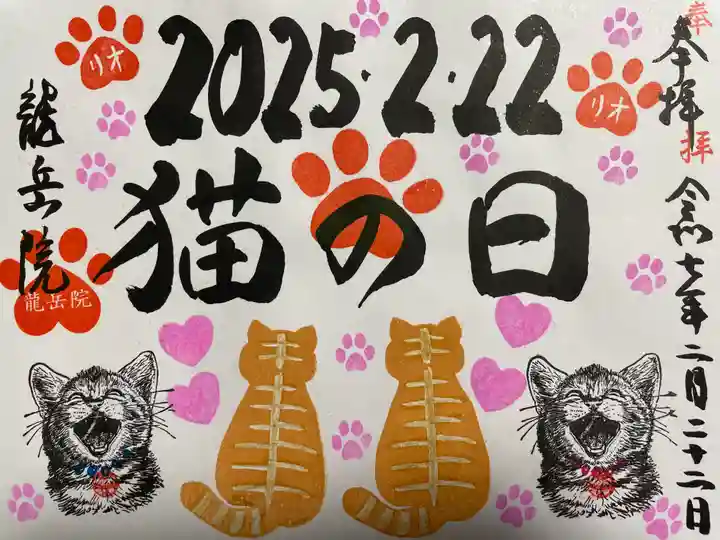 2025・2・22
猫の日
奉拝
奉拝
令和七年二月二十二日
龍岳院
龍岳院
リオ
リオ